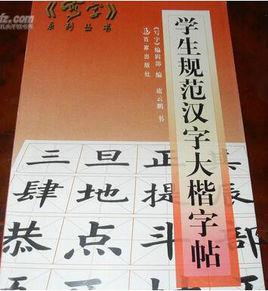 《写字》
系列丛书
《写字》编辑部 编 云鹏 书
百家出版社
学生规范汉字大楷字帖
三旦
肆地提
点斗